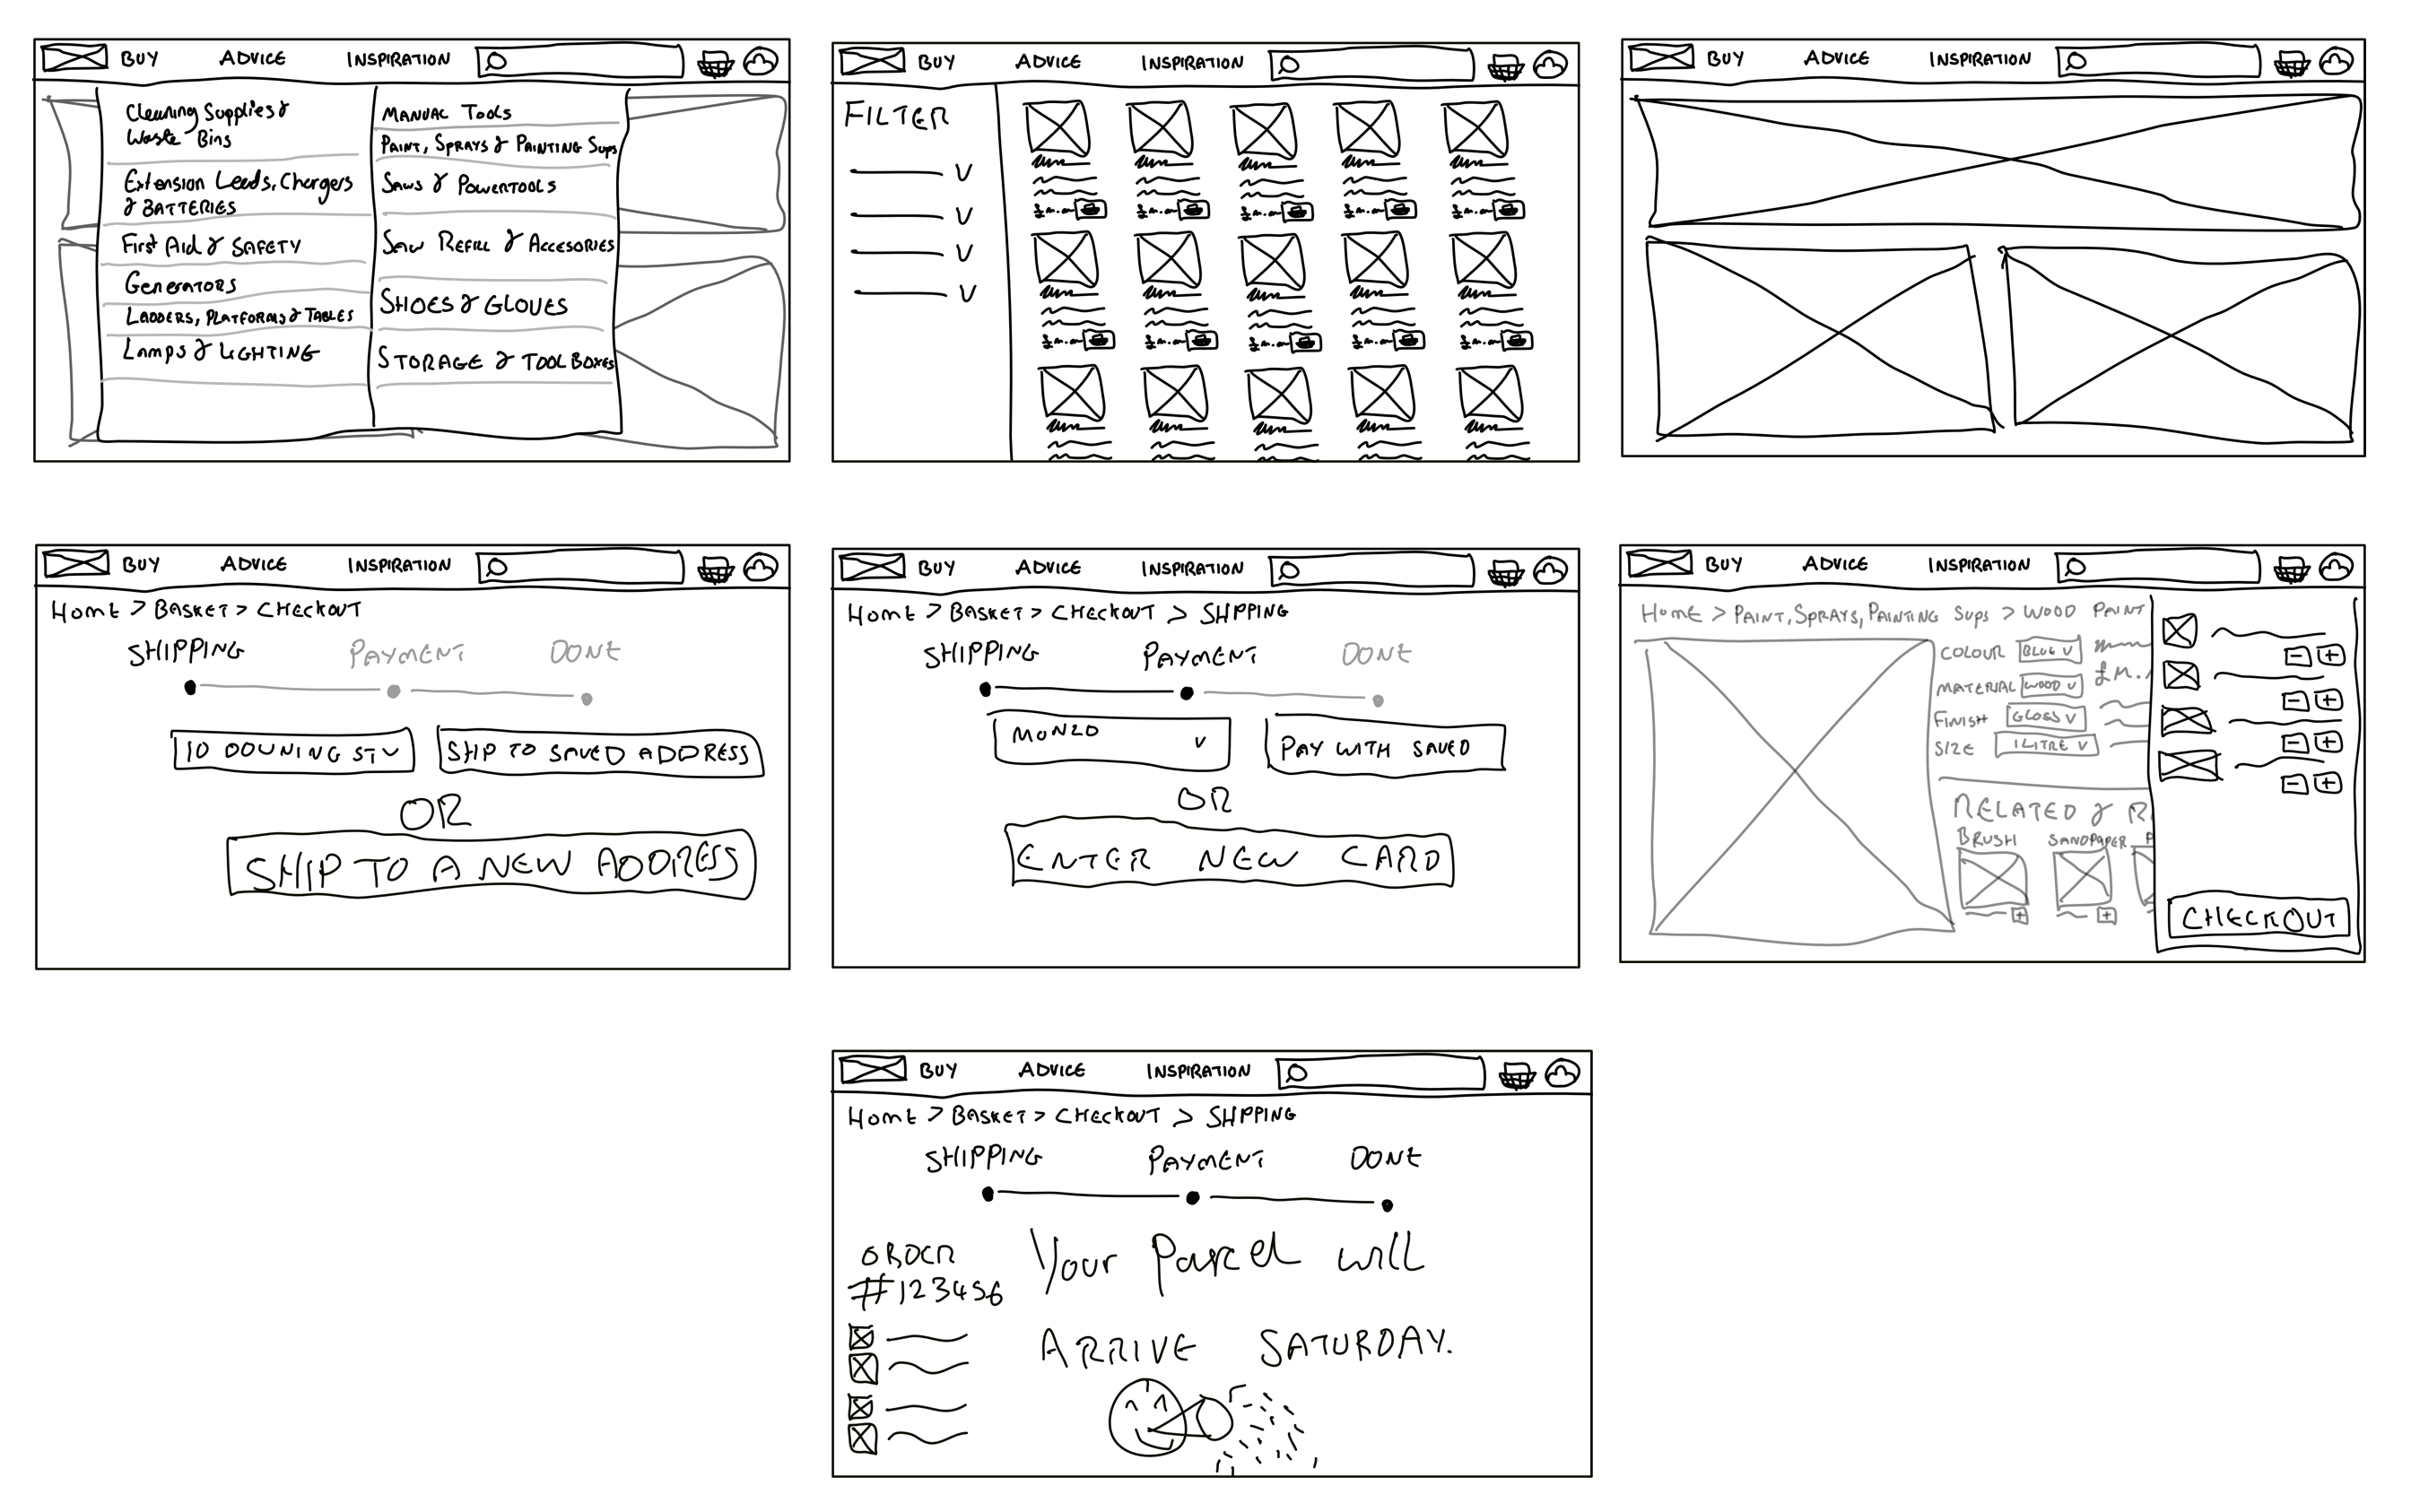 BUY ADVICE INSPIRATION
Cleaning Supplies &
Waste Bins
Extension Leads, Chargers
& BATTERIES
First Aid & SAFETY
Generators
LADDERS, PLATFORMS & TABLES
Lamps & LIGHTING
MANUAL TOOLS
PAINT, SPRAYS & PAINTING SUPS
SAWS & POWERTOOLS
SAW REFILL & ACCESORIES
SHOES & GLOVES
STORAGE & TOOLBOXES
BUY ADVICE INSPIRATION
FILTER
BUY ADVICE INSPIRATION
BUY ADVICE INSPIRATION
HOME > BASKET > CHECKOUT
SHIPPING PAYMENT DONE
10 DOWNING ST V SHIP TO SAVED ADDRESS
OR
SHIP TO A NEW ADDRESS
BUY ADVICE INSPIRATION
HOME > BASKET > CHECKOUT > SHIPPING
SHIPPING PAYMENT DONE
MONZO V PAY WITH SAVED
OR
ENTER NEW CARD
BUY ADVICE INSPIRATION
HOME > PAINT, SPRAYS, PAINTING SUPS > WOOD PAINT
COLOUR BLUE V
MATERIAL WOOD V
FINISH GLOSS V
SIZE 1 LITRE V
RELATED & R
BRUSH SANDPAPER P
CHECKOUT
BUY ADVICE INSPIRATION
HOME > BASKET > CHECKOUT > SHIPPING
SHIPPING PAYMENT DONE
ORDER
#123456
Your Parcel will
ARRIVE SATURDAY.